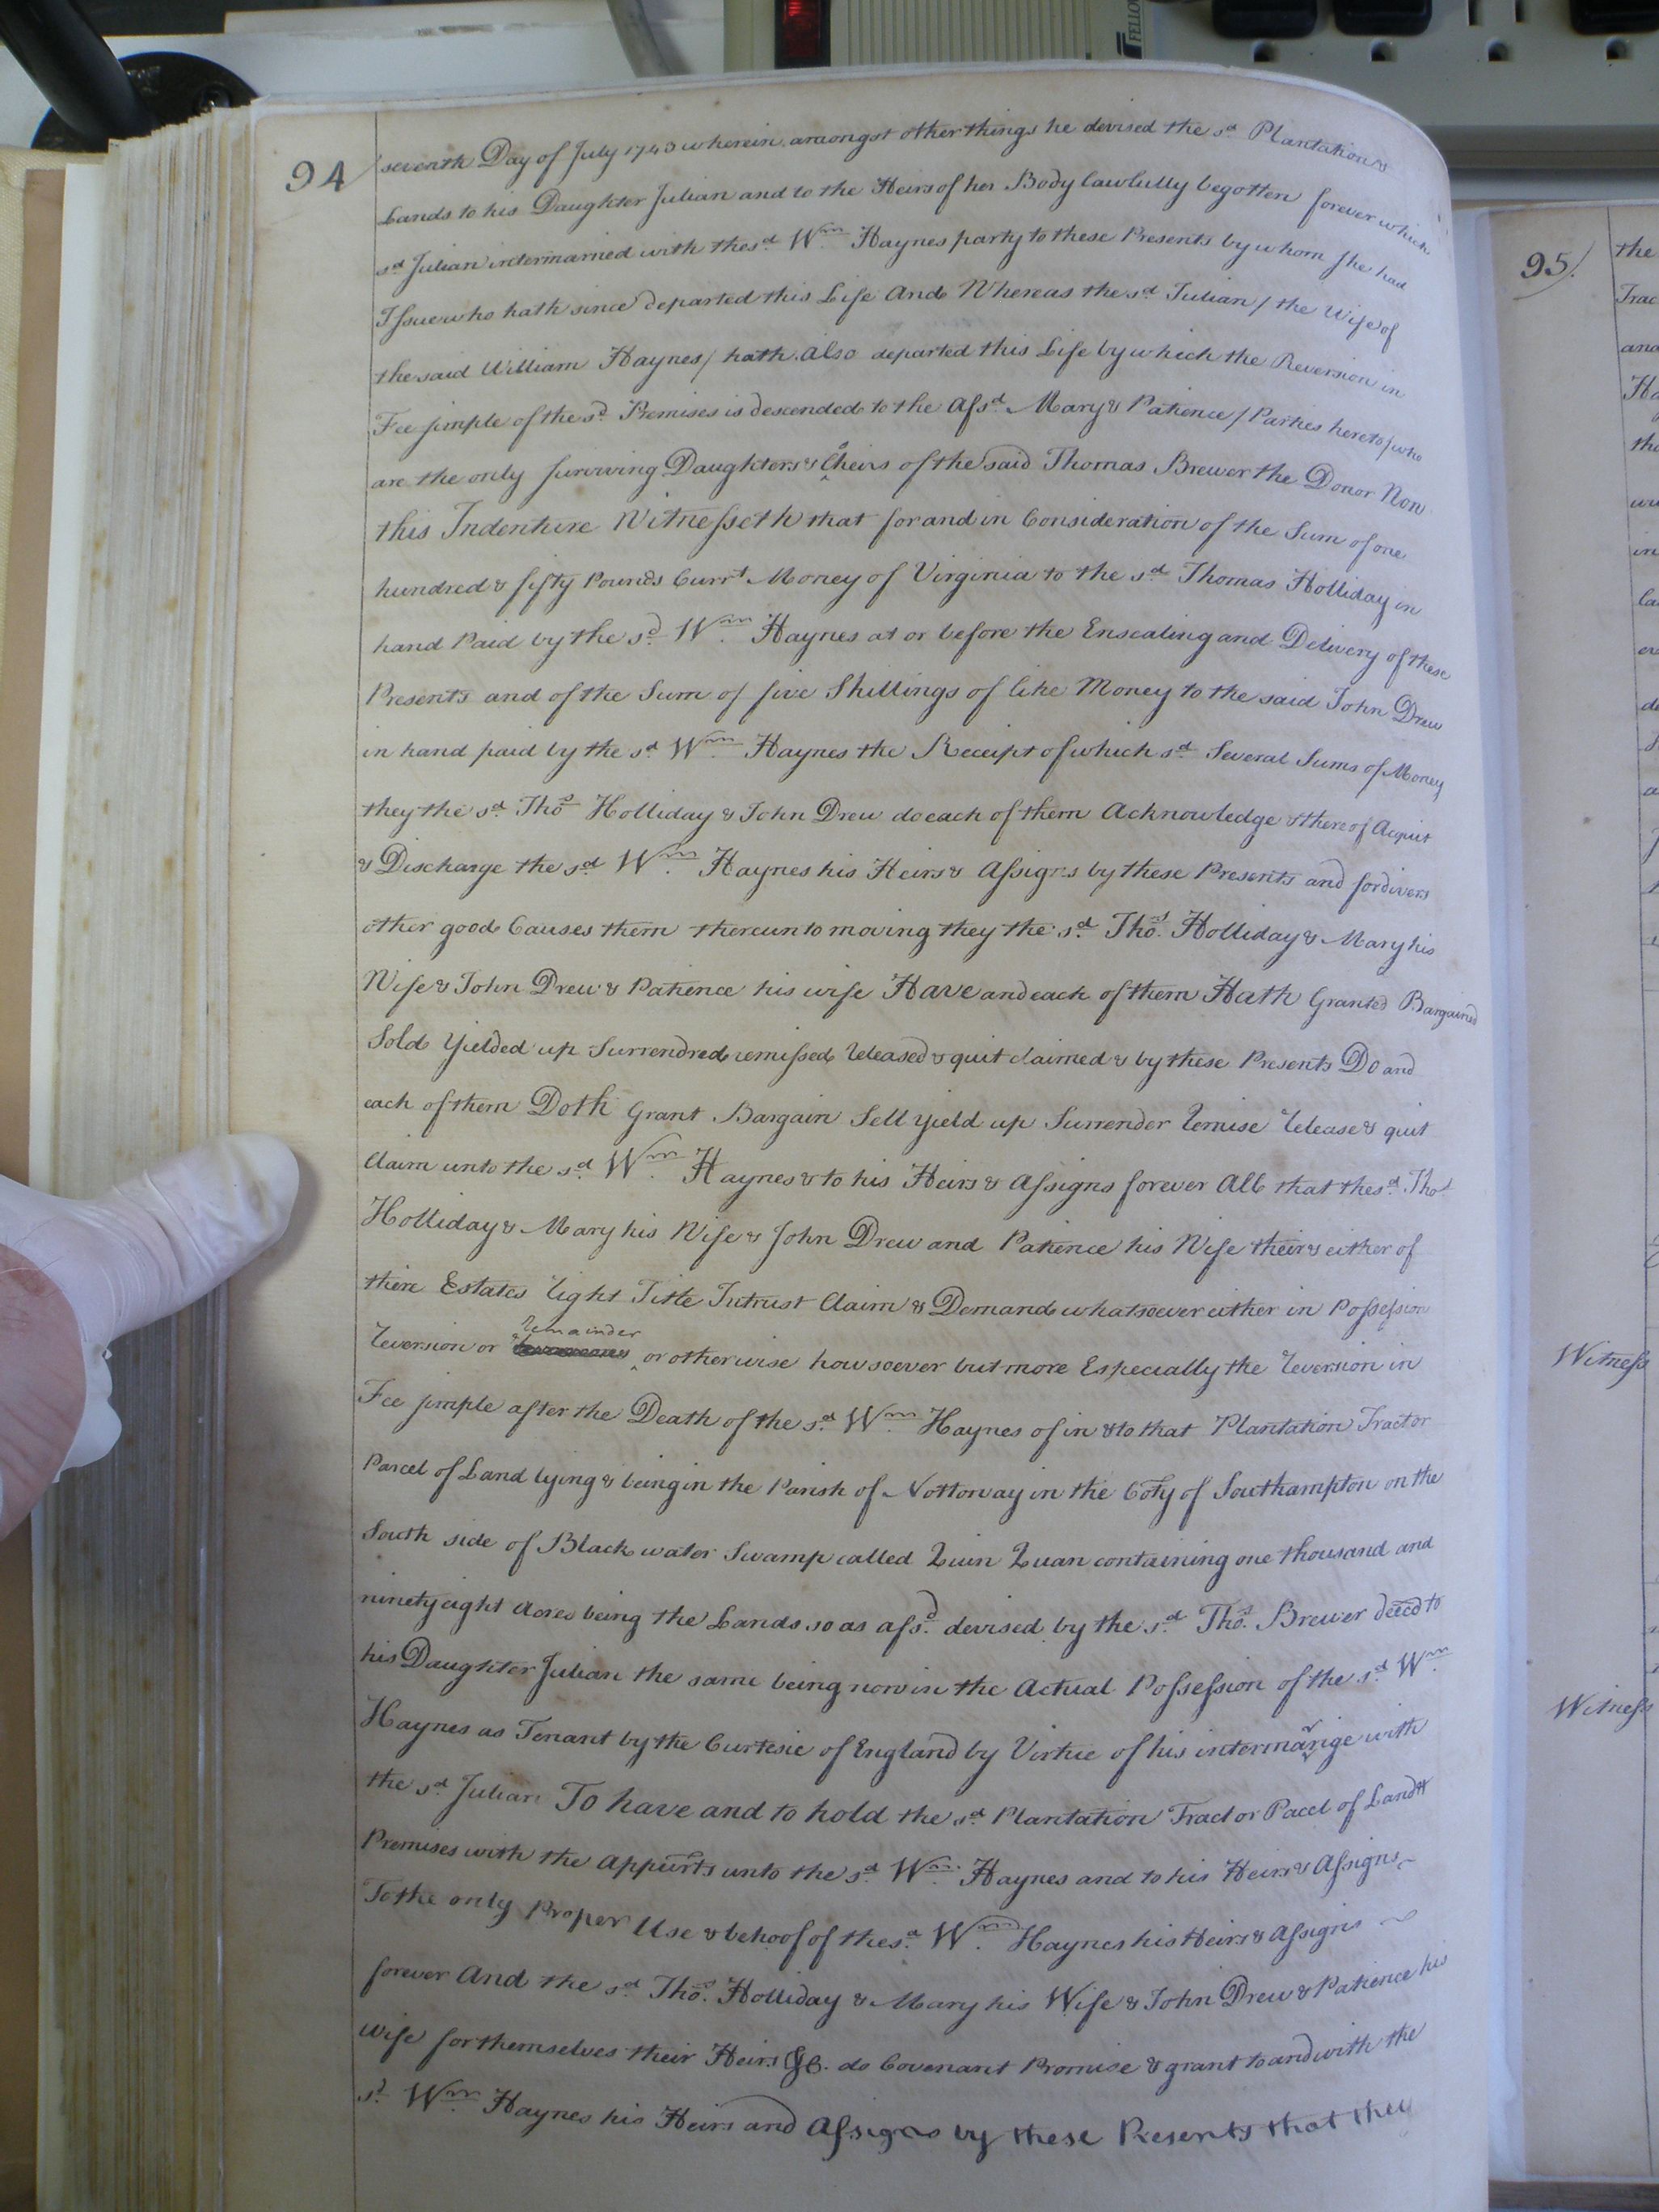 FELLO
94
seventh Day of July 1743 wherein amongst other things he devised the sd Plantation &
Lands to his Daughter Julian and to the Heirs of her Body lawfully begotten forever which
sd Julian intermarried with the sd Wm Haynes party to these Presents by whom she had
Issue who hath since departed this Life And Whereas the sd Julian / the Wife of
the said William Haynes / hath also departed this Life by which the Reversion in
Fee simple of the sd Premises is descended to the Afsd Mary & Patience / Parties hereto / who
are the only surviving Daughters & Coheirs of the said Thomas Brewer the Donor Now
this Indenture Witnesseth that for and in Consideration of the Sum of one
hundred & fifty Pounds Currt Money of Virginia to the sd Thomas Holliday in
hand Paid by the sd Wm Haynes at or before the Ensealing and Delivery of these
Presents and of the Sum of five Shillings of like Money to the said John Drew
in hand paid by the sd Wm Haynes the Receipt of which sd Several Sums of Money
they the sd Thos Holliday & John Drew do each of them Acknowledge & thereof Acquit
& Discharge the sd Wm Haynes his Heirs & Assigns by these Presents and for divers
other good Causes them thereunto moving they the sd Thos Holliday & Mary his
Wife & John Drew & Patience his wife Have and each of them Hath Granted Bargained
Sold Yielded up Surrendred remissed released & quit claimed & by these Presents Do and
each of them Doth Grant Bargain Sell yield up Surrender remise release & quit
Claim unto the sd Wm Haynes & to his Heirs & Assigns forever All that the sd Thos
Holliday & Mary his Wife & John Drew and Patience his Wife their & either of
there Estates right Title Intrust Claim & Demand whatsoever either in Possession
reversion or remainder or otherwise howsoever but more Especially the reversion in
Fee simple after the Death of the sd Wm Haynes of in & to that Plantation Tract or
Parcel of Land lying & being in the Parish of Nottoway in the Coty of Southampton on the
South side of Black water Swamp called Quin Quan containing one thousand and
ninety eight Acres being the Lands so as afsd devised by the sd Thos Brewer decd to
his Daughter Julian the same being now in the Actual Possession of the sd Wm
Haynes as Tenant by the Curtesie of England by Virtue of his intermarrige with
the sd Julian To have and to hold the sd Plantation Tract or Pacel of Land &
Premises with the Appurts unto the sd Wm Haynes and to his Heirs & Assigns
To the only Proper Use & behoof of the sd Wm Haynes his Heirs & Assigns
forever And the sd Thos Holliday & Mary his Wife & John Drew & Patience his
wife for themselves their Heirs &c. do Covenant Promise & grant to and with the
sd Wm Haynes his Heirs and Assigns by these Presents that they
95
the
Trac
and
Ha
the
in
la
Witness
Witness